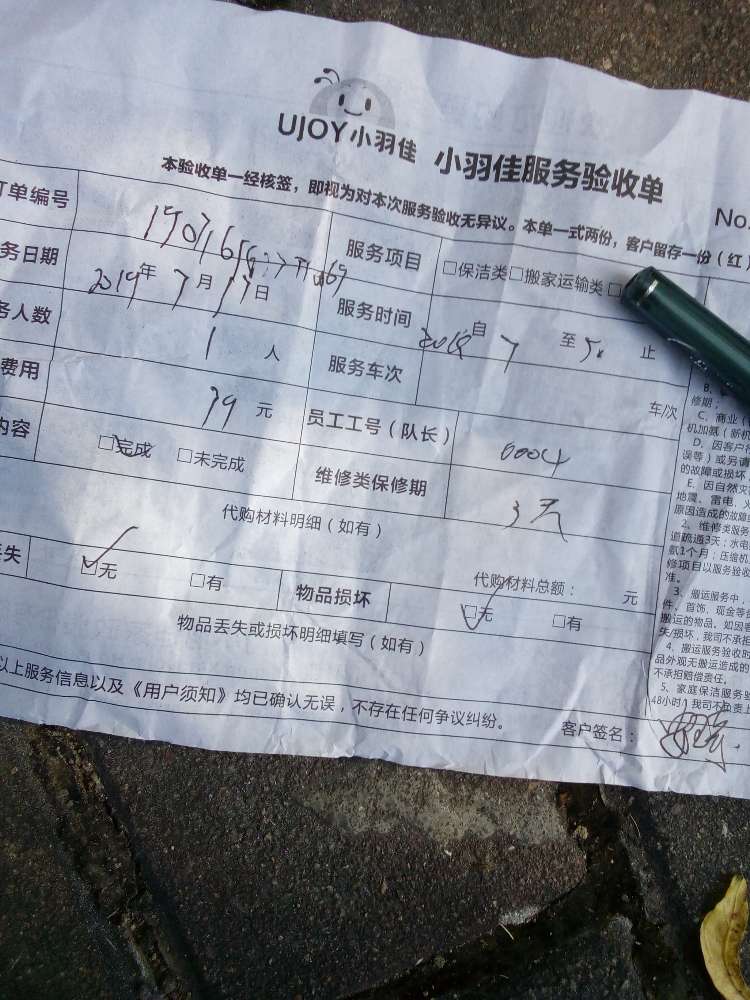 UJOY小羽佳 小羽佳服务验收单
No.
本验收单一经核签，即视为对本次服务验收无异议。本单一式两份，客户留存一份（红）
订单编号 服务项目 □保洁类 □搬家运输类 □
务日期 2019年7月17日 服务时间 自 7 至 5. 止
务人数 1 人 服务车次 车/次
费用 79 元 员工工号（队长） 0004
内容 □完成 □未完成 维修类保修期 3天
代购材料明细（如有）
代购材料总额： 元
丢失 □无 □有 物品损坏 □无 □有
物品丢失或损坏明细填写（如有）
以上服务信息以及《用户须知》均已确认无误，不存在任何争议纠纷。
客户签名：
修期；
C、商业（
机加氨（新机
D、因客户
误等）或另请
的故障或损坏
E、因自然灾
地震、雷电、火
原因造成的故障
2、维修类服务
道疏通3天；水电
氨1个月；压缩机
修项目以服务验收
准。
3、搬运服务中，
件、首饰、现金等
搬运的物品，如因客
失/损坏，我司不承担
4、搬运服务验收时
品外观无搬运造成的
不承担赔偿责任。
5、家庭保洁服务验
48小时，我司不负责上